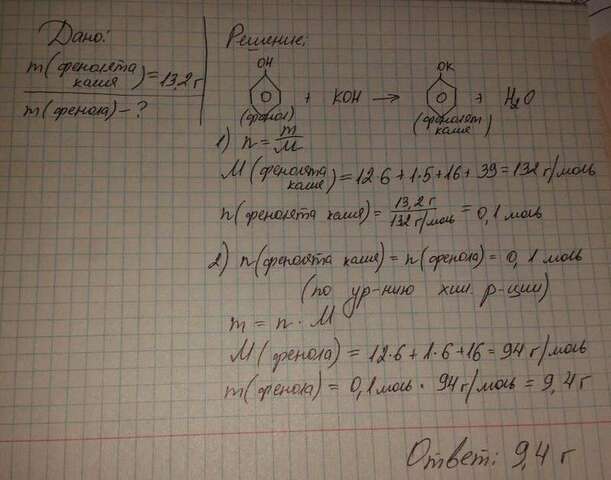 Дано:
m(фенолята калия) = 13,2 г
m(фенола) - ?
Решение:
OH + KOH → OK + H₂O
(фенол) (фенолят калия)
1) n = m/M
M(фенолята калия) = 12·6 + 1·5 + 16 + 39 = 132 г/моль
n(фенолята калия) = 13,2 г / 132 г/моль = 0,1 моль
2) n(фенолята калия) = n(фенола) = 0,1 моль
(по ур-нию хим. р-ции)
m = n · M
M(фенола) = 12·6 + 1·6 + 16 = 94 г/моль
m(фенола) = 0,1 моль · 94 г/моль = 9,4 г
Ответ: 9,4 г